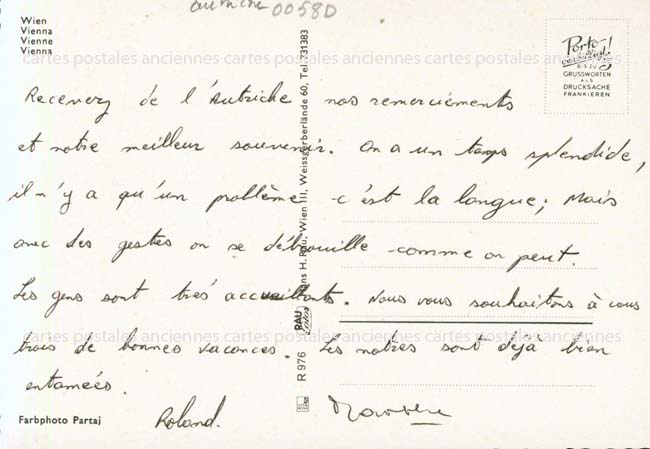 autriche 0058D
Wien
Vienna
Vienne
Vienna
cartes postales anciennes cartes postales anciennes cartes postales anciennes
Porto
BIS ZU
GRUSSWORTEN
ALS
DRUCKSACHE
FRANKIEREN
Recevery de l'Autriche nos remerciements
et notre meilleur souvenir. On a un temps splendide,
il n'y a qu'un problème c'est la langue; Mais
avec des gestes on se débrouille comme on peut.
Les gens sont très accueillants. Nous vous souhaitons à vous
cartes postales anciennes cartes postales anciennes cartes postales anciennes
trois de bonnes vacances. Les notres sont déjà bien
entamées.
Roland.
Farbphoto Partaj
R 976 RAU Hans H. Rau, Wien III, Weissgerberlände 60, Tel. 731383